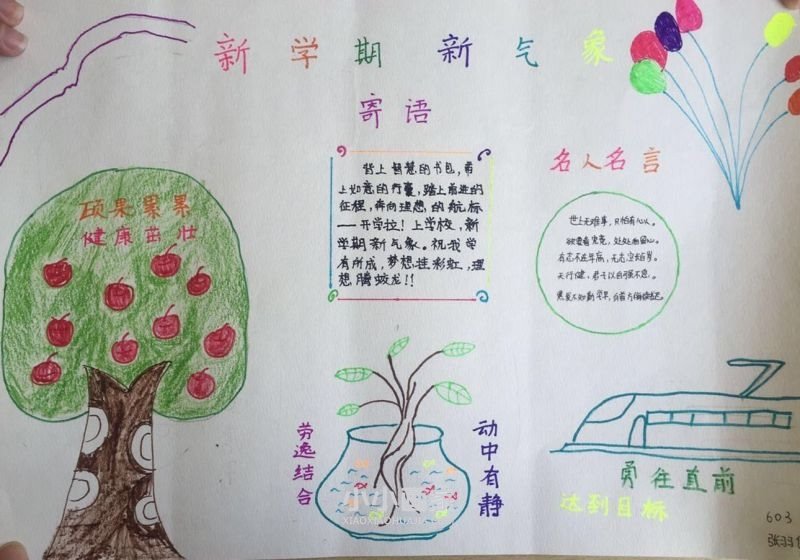 新学期 新气象
寄语
硕果累累
健康茁壮
背上智慧的书包,肩
上如意的行囊,踏上前进的
征程,奔向理想的航标
——开学拉!上学校,新
学期新气象。祝我学
有所成,梦想挂彩虹,理
想腾蛟龙!!
名人名言
世上无难事,只怕有心人。
欲穷书究竟,处处细留心。
有志不在年高,无志空长百岁。
天行健,君子以自强不息。
黑发不知勤学早,白首方悔读书迟。
劳逸结合
动中有静
勇往直前
达到目标
小小画家
XIAOXIAOHUAJIA
603